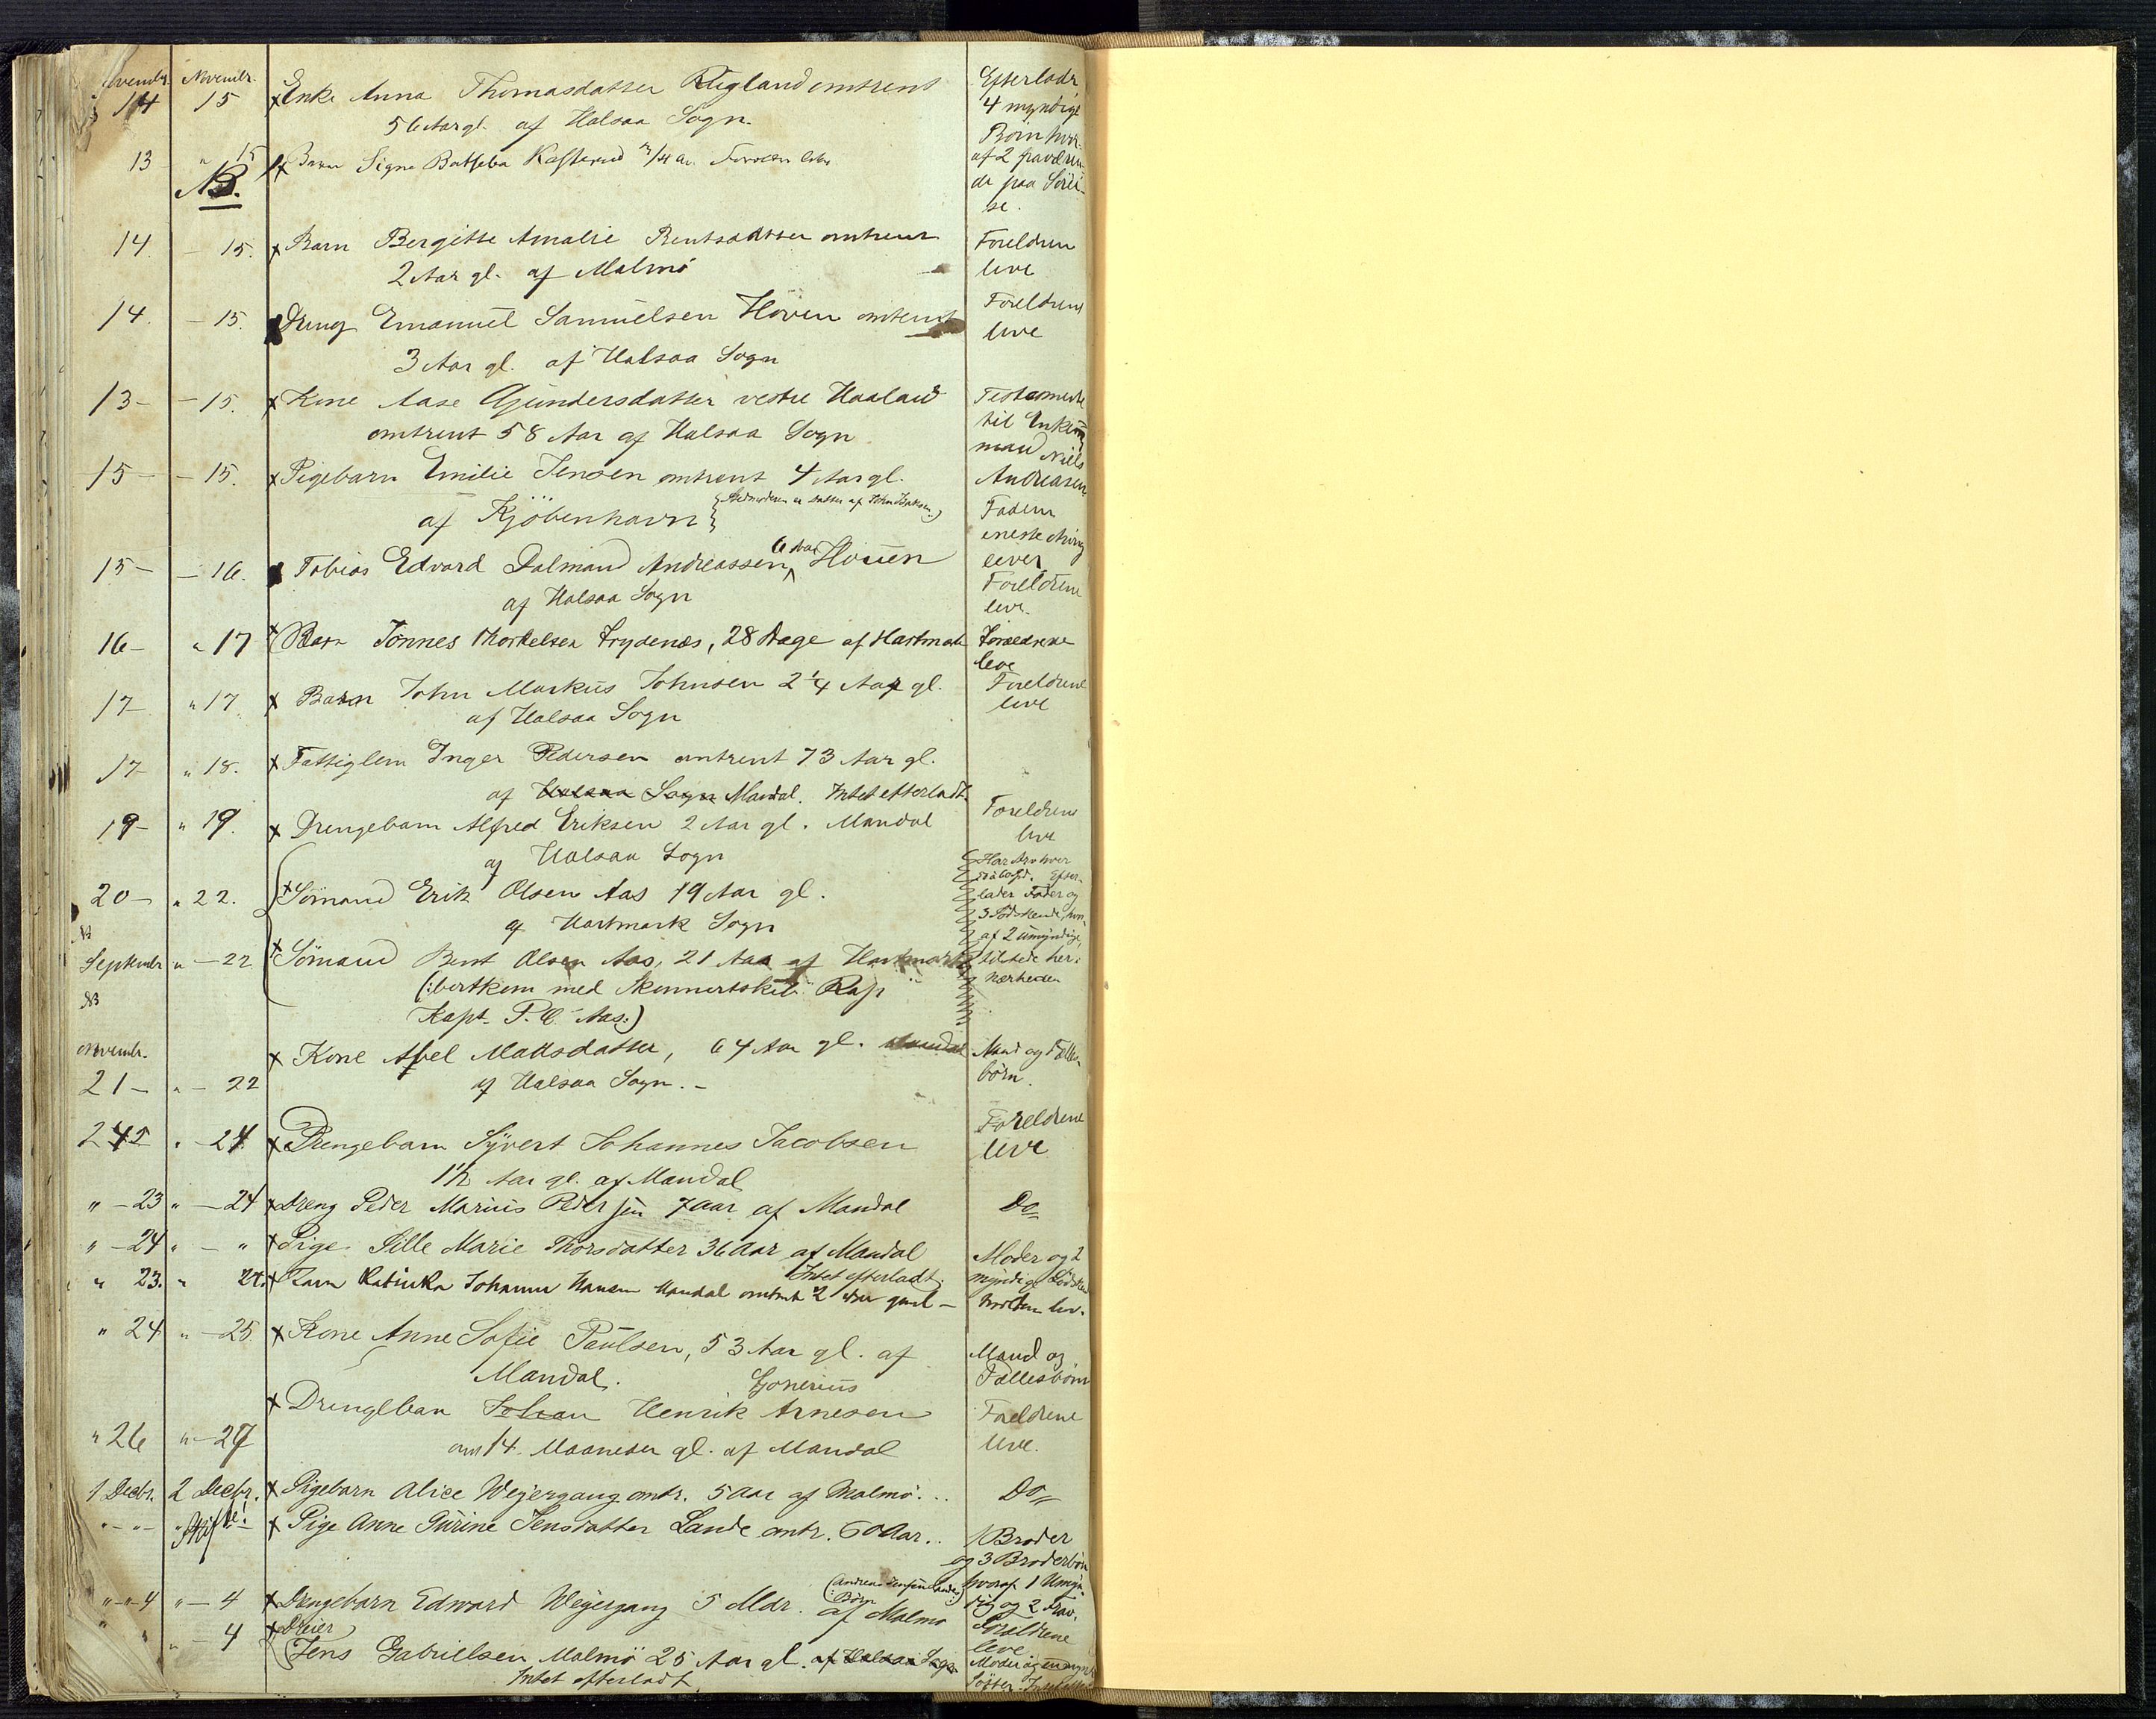 Novembr. Novembr.
14 15 Enke Anna Thomasdatter Rugland omtrent Efterlader
56 Aar gl. af Halsaa Sogn. 4 myndige
Børn hvor-
13 " 15 Barn Signe 3/4 Aar af 2 fraværen-
NB. de paa Sørei-
se.
14. - 15. Barn Bergitte Amalie Bentsdatter omtrent Foreldrene
2 Aar gl. af Malmö leve
14. - 15. Dreng Emanuel Samuelsen Höven omtrent Foreldrene
3 Aar gl. af Halsaa Sogn leve
13 - - 15. Kone Aase Gundersdatter vestre Haaland Testamente
omtrent 58 Aar af Halsaa Sogn til Enke-
mand Niels
15 - - 15. Pigebarn Emilie Jensen omtrent 4 Aar gl. Andreasen
af Kjöbenhavn Faderen
eneste Arving
15 - - 16. Tobias Edvard Dalmand Andreassen, 6 Aar Houen lever
af Halsaa Sogn Foreldrene
leve.
16 - " 17 Barn Tönnes Thorkelsen Frydenæs, 28 Dage af Hartmark Foreldrene
leve
17 - " 17 Barn John Markus Johnsen 2 1/4 Aar gl. Foreldrene
af Halsaa Sogn leve
17 - " 18. Fattiglem Inger Pedersen omtrent 73 Aar gl.
af Halsaa Sogn Mandal. Intet efterladt.
19 - " 19. Drengebarn Alfred Eriksen 2 Aar gl. Mandal Foreldrene
af Halsaa Sogn leve
20 - " 22. Sömand Erik Olsen Aas 19 Aar gl. Efter-
af Hartmark Sogn lader Fader og
3 Södskende, hvor-
af 2 umyndige,
September " - 22 Sömand Bent Olsen Aas, 21 Aar af Hartmark tilstede her i
NB (: bortkom med Skonnertskib "Rap" Nærheden
Kapt. P. C. Aas :)
Novembr.
Kone Abel Madsdatter, 64 Aar gl. Mandal Mand og Fælles-
21 - " - 22 af Halsaa Sogn. - börn.
Foreldrene
" - 24. Drengebarn Syvert Johannes Jacobsen leve
1 1/2 Aar gl. af Mandal
" - 23 " - 24 Dreng Peder Marius Pedersen 7 Aar af Mandal Do
" - 24 " - " Pige Sille Marie Thorsdatter 36 Aar af Mandal Moder og 2
Intet efterladt. myndige Södskende
" 23. " 24. Barn Katinka Johanne Hansen Mandal omtrent 2 Aar gml -
" 24 " - 25. Kone Anne Sofie Paulsen, 53 Aar gl. af Mand og
Mandal. Fællesbörn
Gonerius
Drengebarn Johan Henrik Arnesen Foreldrene
" 26 " - 27 om 14. Maaneder gl. af Mandal leve.
1 Decbr. 2 Decbr. Pigebarn Alice Wejergang omtr. 5 Aar af Malmö. .. Do
" - " - Skifte! Pige Anne Gurine Jensdatter Lande omtr. 60 Aar .. 1 Broder
og 3 Broderbörn
(Andreas Jensen Landes hvoraf 1 Umyn-
Börn)
" - " - 4 " - 4 Drengebarn Edward Wejergang 5 Mdr. af Malmö dig og 2 Frav.
Foreldrene
" " " - 4 Dreier leve
Jens Gabrielsen Malmö 25 Aar gl. af Halsaa Sogn Moder og en mynd.
Intet efterladt. Söster.